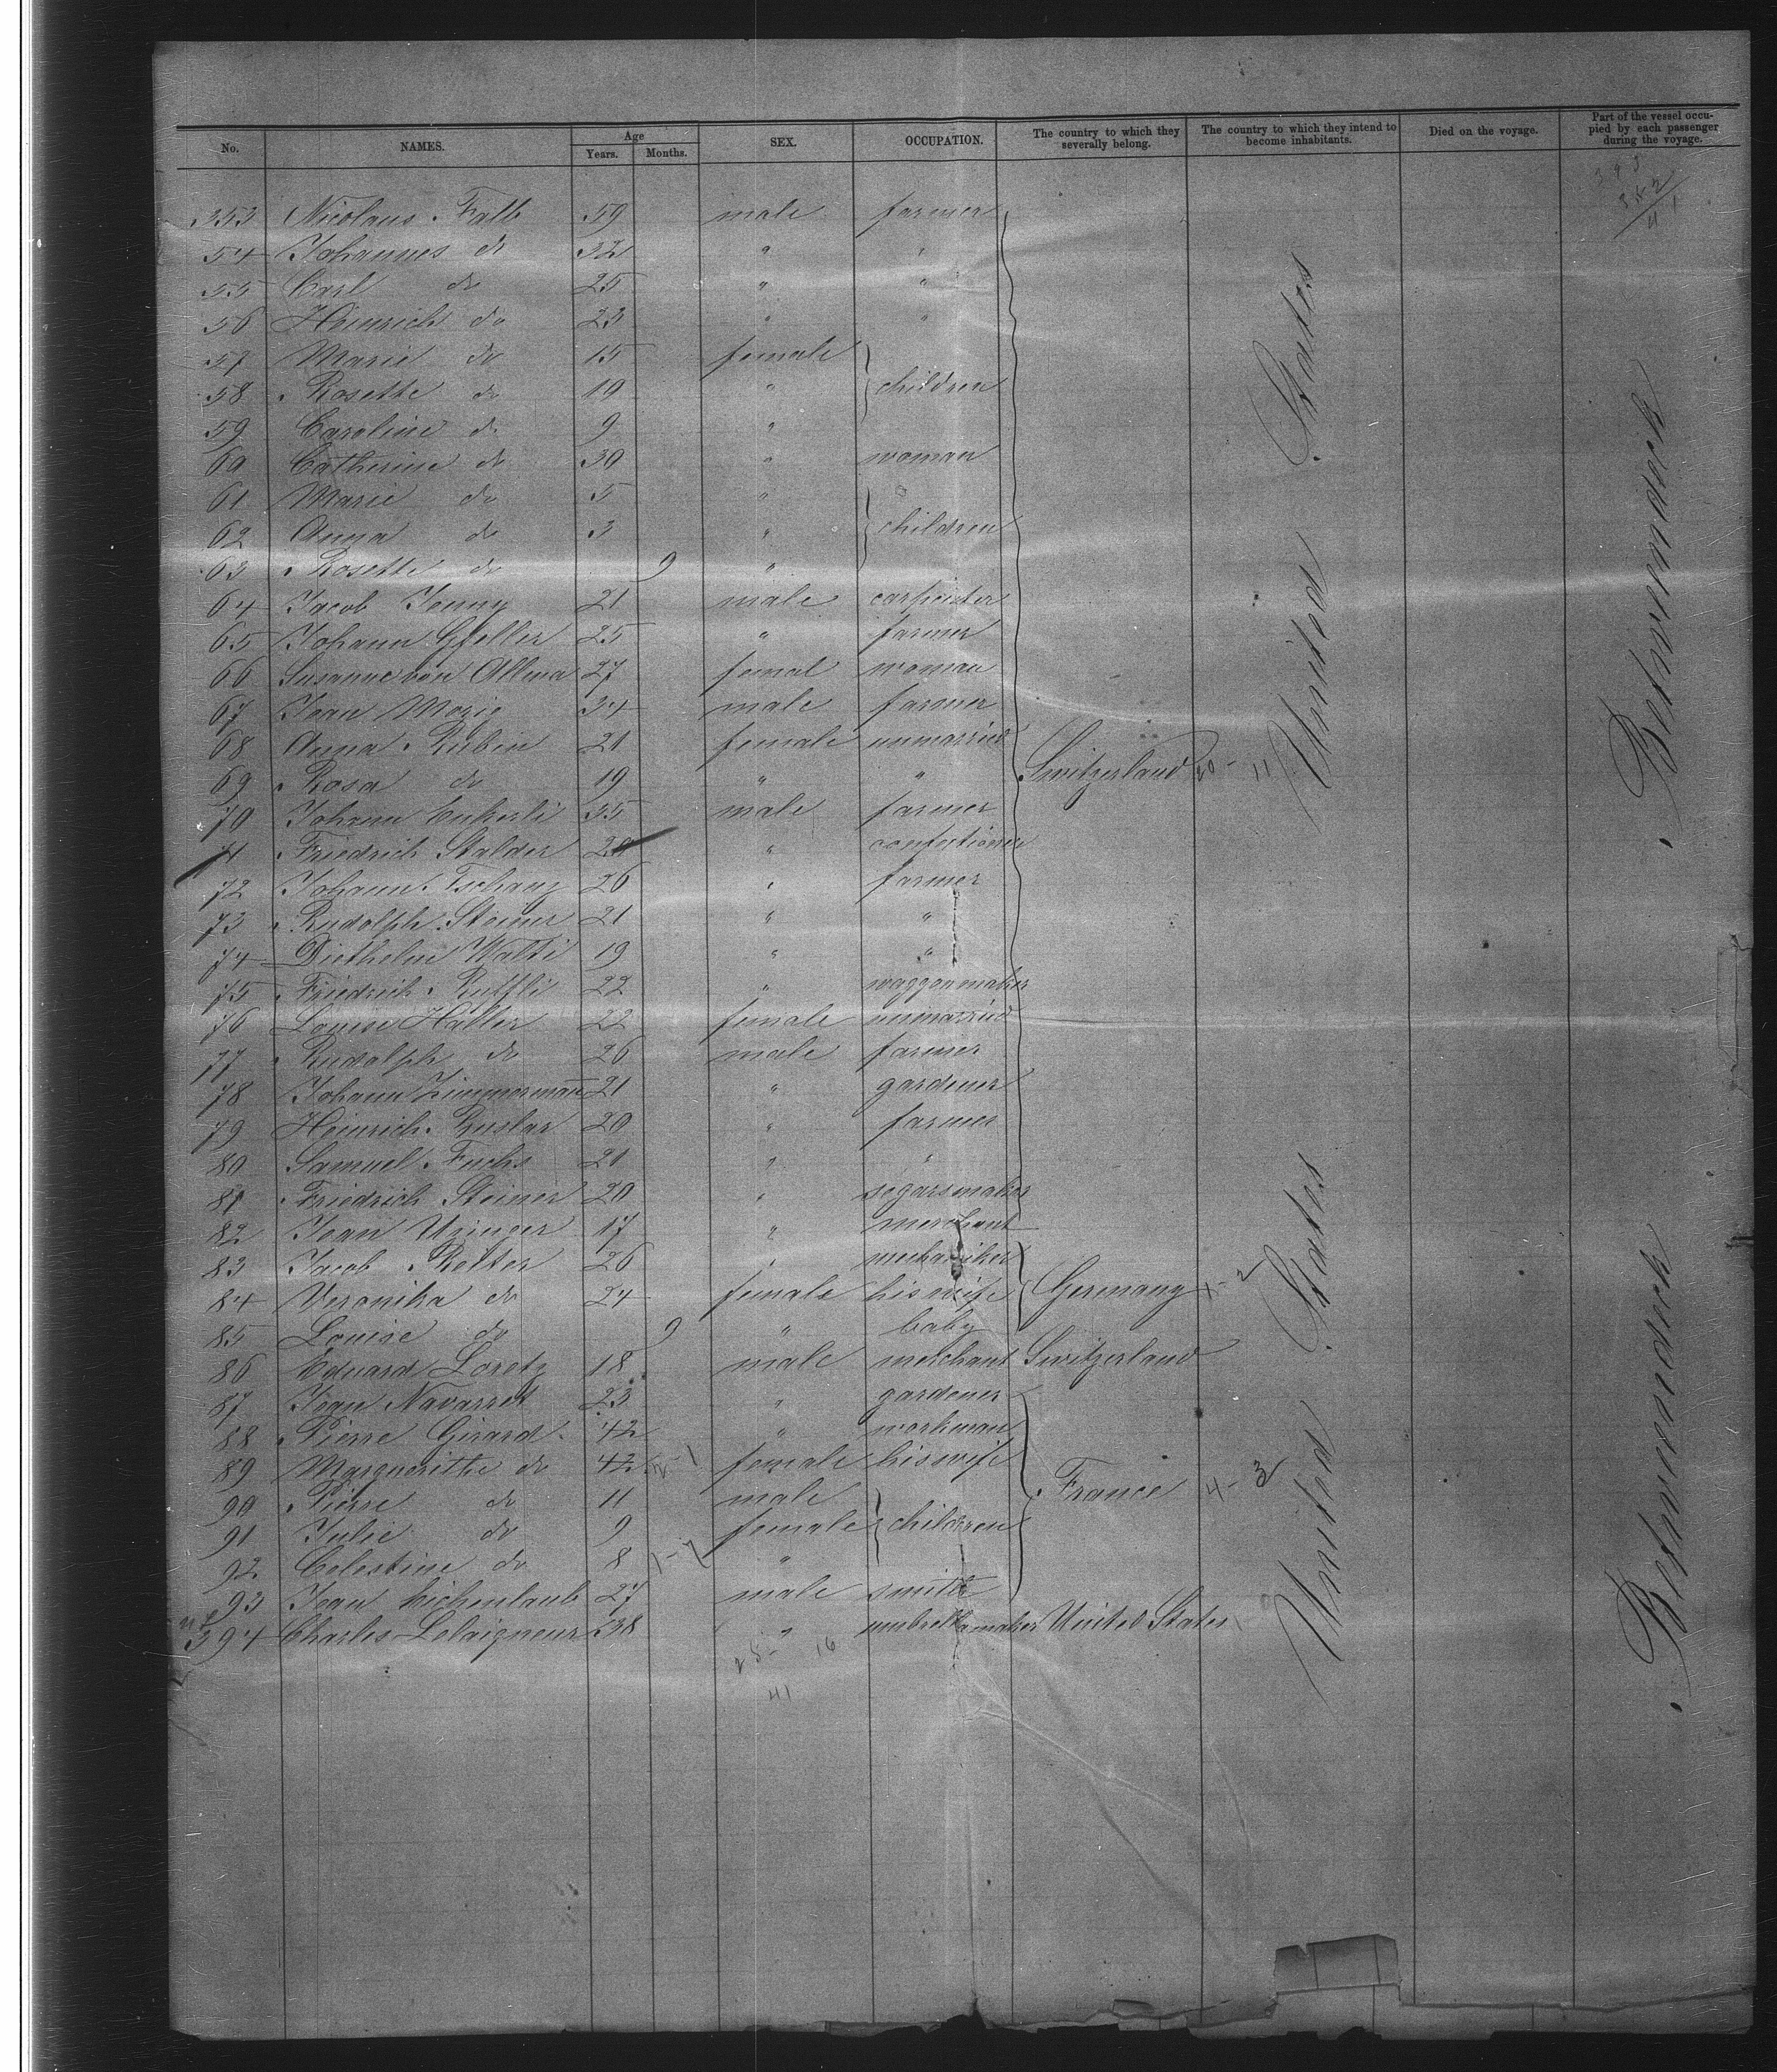 No. NAMES. Age Years. Months. SEX. OCCUPATION. The country to which they severally belong. The country to which they intend to become inhabitants. Died on the voyage. Part of the vessel occupied by each passenger during the voyage.
353 Nicolaus Falb 59 male farmer
54 Johannes do 32 " "
55 Carl do 25 " "
56 Heinrich do 23 " "
57 Marie do 15 female
58 Rosette do 10 " children
59 Caroline do 9 "
60 Catherine do 30 " woman
61 Marie do 5 "
62 Anna do 3 " children
63 Rosette do 9 "
64 Jacob Jenny 21 male carpenter
65 Johann Gfeller 25 " farmer
66 Susanne von Allma 27 femal woman
67 Jean 34 male farmer
68 Anna Rubin 21 female unmarried
69 Rosa do 19 " " Switzerland 20 - 11 United States Betweendeck
70 Johann 35 male farmer
71 Friedrich Stalder 20 "
72 Johann Tschanz 26 " farmer
73 Rudolph Steiner 21 " "
74 Diethelm Walti 19 " "
75 Friedrich 22 " waggonmaker
76 Louise Haller 22 female unmarried
77 Rudolph do 26 male farmer
78 Johann Zimmermann 21 " gardener
79 Heinrich 20 " farmer
80 Samuel Fuchs 21 " "
81 Friedrich Steiner 20 " segarsmaker
82 Jean 17 " merchant
83 Jacob 26 " mechaniker
84 Veronika do 24 female his wife Germany 1 - 2
85 Louise do 9 " baby
86 Eduard Loretz 18 male merchant Switzerland
87 Jean Navarret 23 " gardener
88 Pierre Girard 42 " workman
89 Margueritte do 42 female his wife
90 Pierre do 11 male France 4 - 3 United States Betweendeck
91 Julie do 9 female children
92 Celestine do 8 "
93 Jean Eichenlaub 27 male smith
394 Charles Lelaigneur 38 " umbrellamaker United States
25 - 16
41